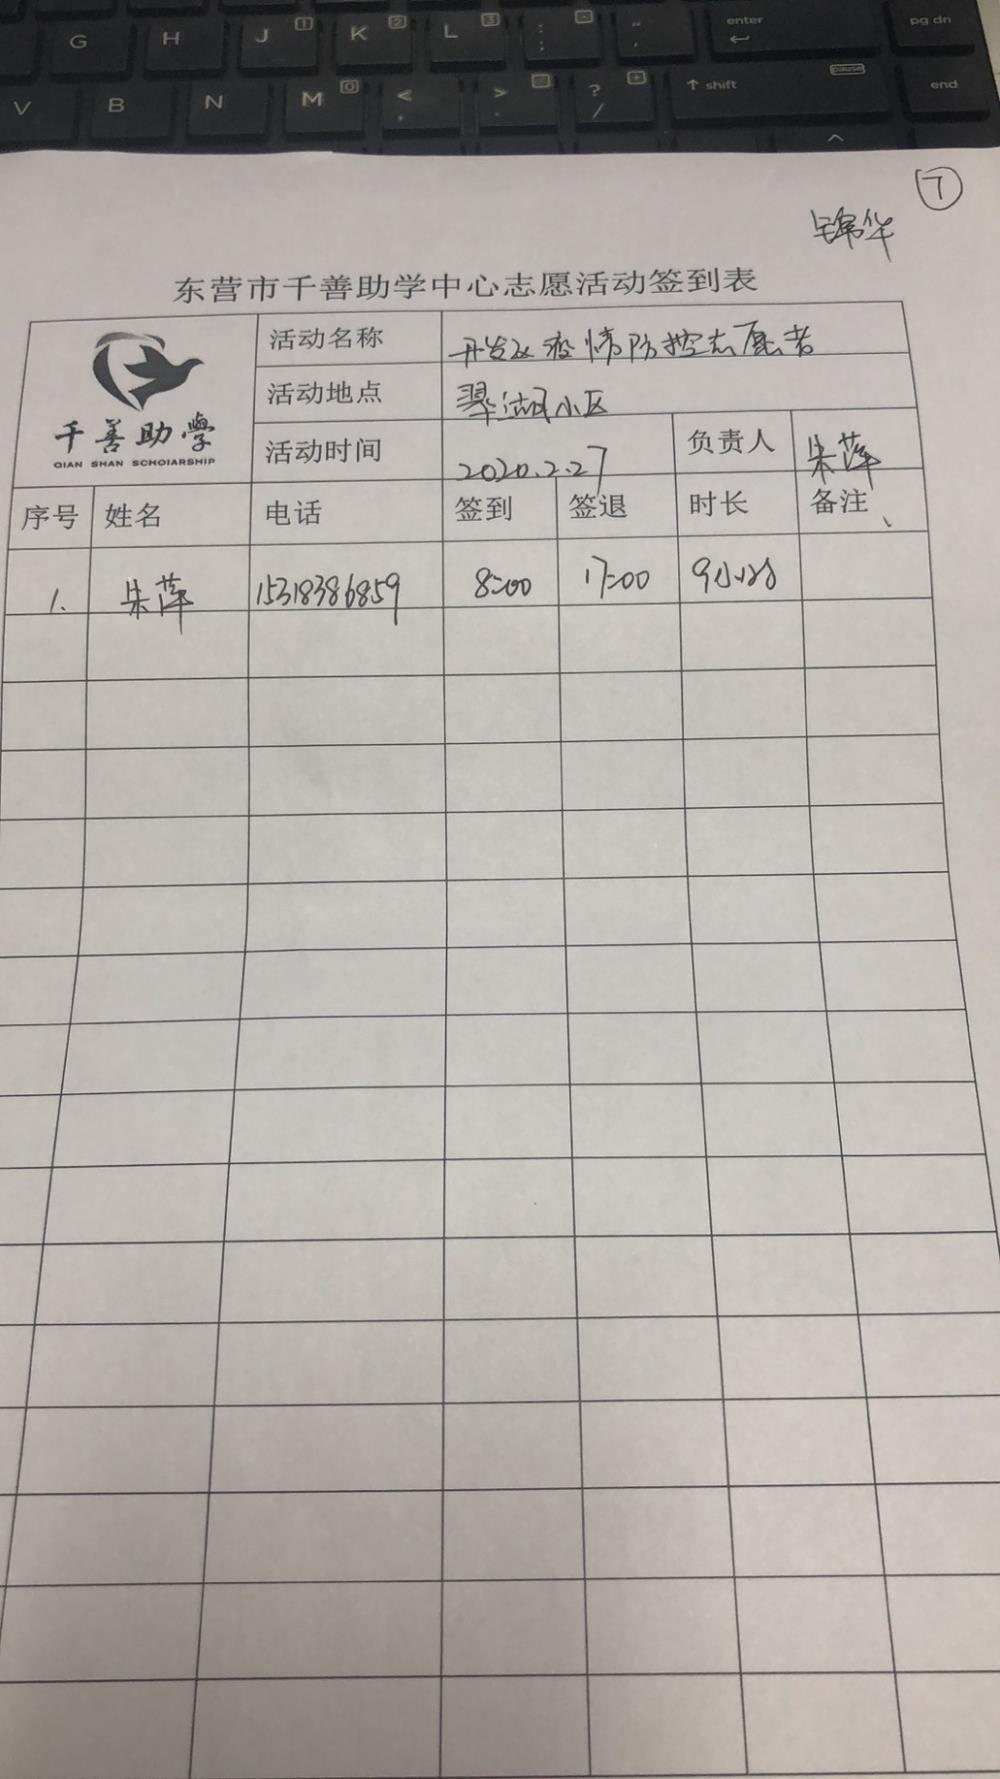 G H J 1 K 2 L 3 : ; " ' enter pg dn
V B N M 0 < , > . ? / + shift pause end
7
东营市千善助学中心志愿活动签到表
千善助學
QIAN SHAN SCHOIARSHIP
活动名称 开发区疫情防控志愿者
活动地点 翠湖小区
活动时间 2020.2.27 负责人 朱萍
序号 姓名 电话 签到 签退 时长 备注
1. 朱萍 15318386859 8:00 17:00 9小时